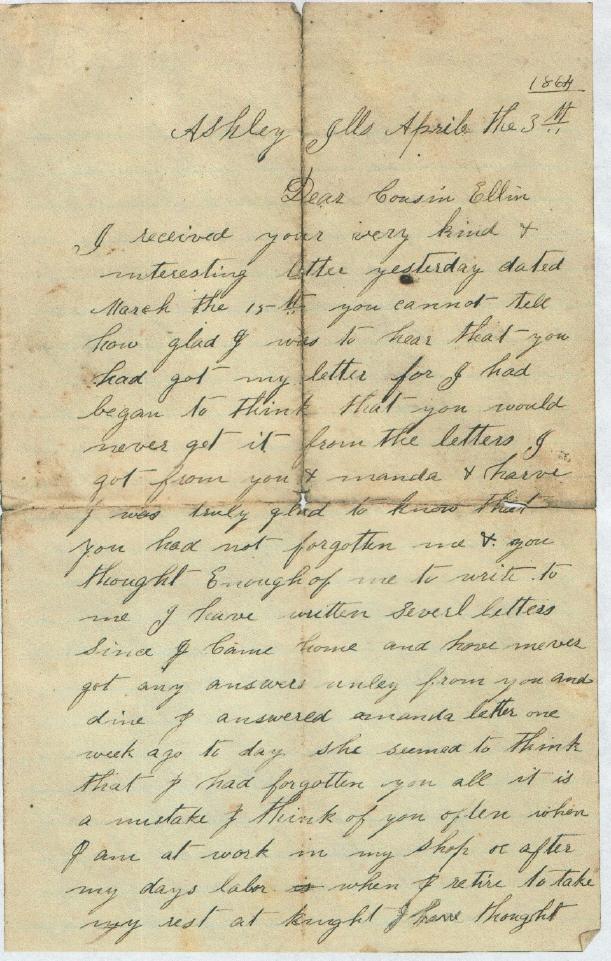 1864
Ashley Ills Aprile the 3th
Dear Cousin Ellin
I received your very kind &
interesting letter yesterday dated
March the 15th you cannot tell
how glad I was to hear that you
had got my letter for I had
began to think that you would
never get it from the letters I
got from you & manda & harve
I was truly glad to know that
you had not forgotten me & you
thought Enough of me to write to
me I have written severl letters
since I Came home and have never
got any answers unley from you and
dine I answered amanda letter one
week ago to day she seemed to think
that I had forgotten you all it is
a mistake I think of you often when
I am at work in my shop or after
my days labor when I retire to take
my rest at knight I have thought